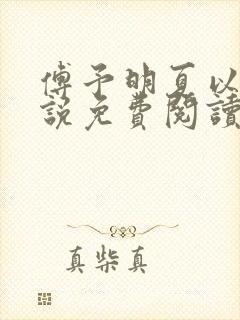 傅予明夏以
說免費閱讀
真柴真